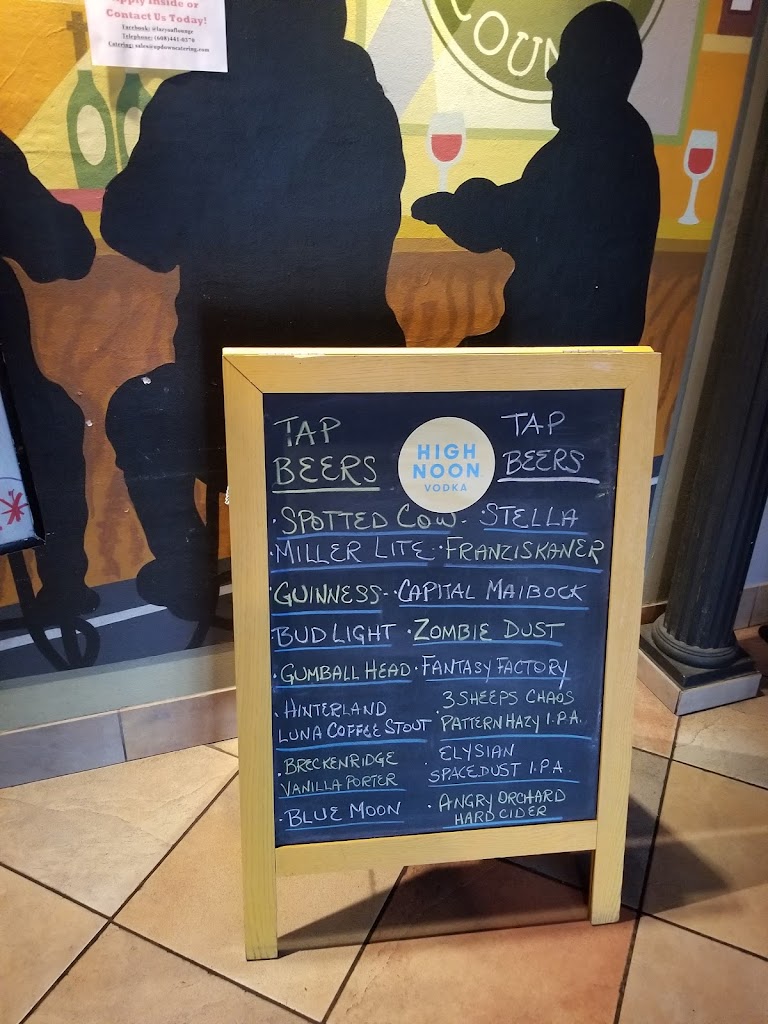 Apply Inside or
Contact Us Today!
Facebook: @lucysaflounge
Telephone: (608)441-0276
Catering: sales@updowncatering.com
OUN
TAP
BEERS
HIGH
NOON
VODKA
TAP
BEERS
· SPOTTED COW - · STELLA
· MILLER LITE · FRANZISKANER
· GUINNESS - · CAPITAL MAIBOCK
BUD LIGHT · ZOMBIE DUST
· GUMBALL HEAD · FANTASY FACTORY
· HINTERLAND
LUNA COFFEE STOUT
· 3 SHEEPS CHAOS
PATTERN HAZY I.P.A.
· BRECKENRIDGE
VANILLA PORTER
· ELYSIAN
SPACEDUST I.P.A.
· BLUE MOON
· ANGRY ORCHARD
HARD CIDER